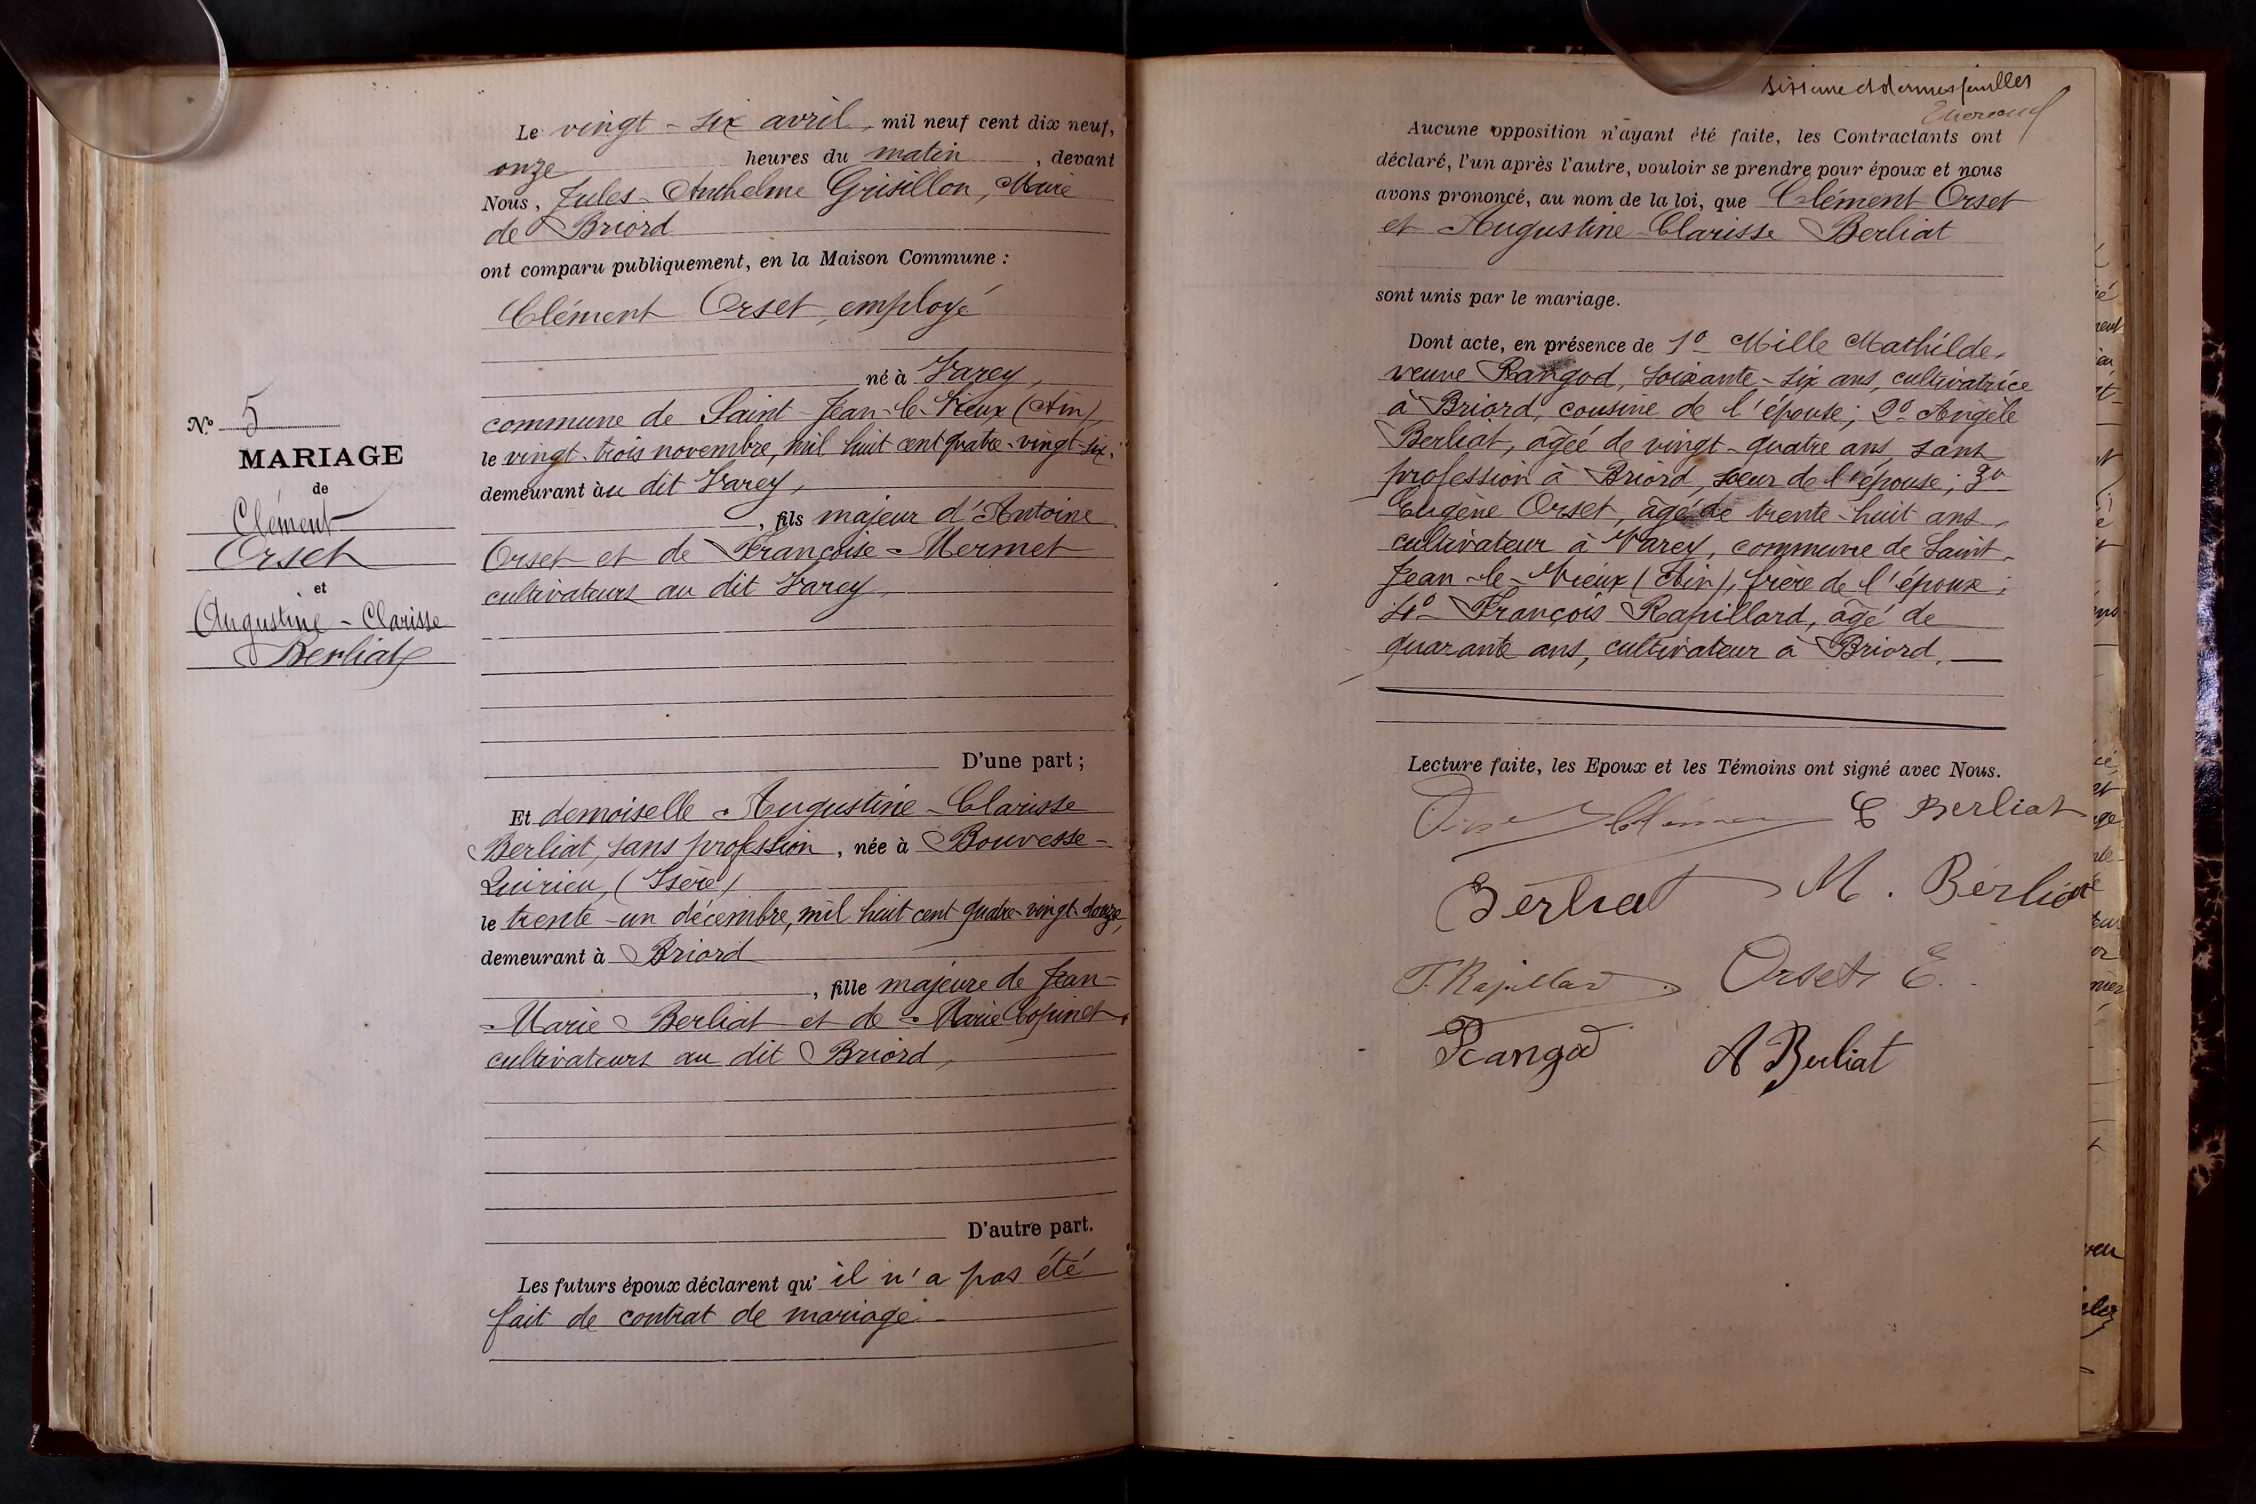 N° 5
MARIAGE
de
Clément
Orset
et
Augustine - Clarisse
Berliat
Le vingt - six avril, mil neuf cent dix neuf,
onze heures du matin, devant
Nous, Jules - Anthelme Grisillon, Maire
de Briord
ont comparu publiquement, en la Maison Commune :
Clément Orset, employé
né à Varey,
commune de Saint-Jean-le-Vieux (Ain),
le vingt-trois novembre, mil huit cent quatre-vingt-six,
demeurant au dit Varey,
, fils majeur d'Antoine
Orset et de Françoise - Mermet
cultivateurs au dit Varey,
D'une part ;
Et demoiselle Augustine - Clarisse
Berliat, sans profession, née à Bouvesse-
Quirieu, (Isère)
le trente-un décembre, mil huit cent quatre-vingt-douze,
demeurant à Briord
, fille majeure de Jean-
Marie Berliat et de Marie Copinet,
cultivateurs au dit Briord,
D'autre part.
Les futurs époux déclarent qu'il n'a pas été
fait de contrat de mariage.
feuilles
Aucune opposition n'ayant été faite, les Contractants ont
déclaré, l'un après l'autre, vouloir se prendre pour époux et nous
avons prononcé, au nom de la loi, que Clément Orset
et Augustine - Clarisse Berliat
sont unis par le mariage.
Dont acte, en présence de 1° Mille Mathilde,
veuve Rangod, soixante-six ans, cultivatrice
à Briord, cousine de l'épouse ; 2° Angèle
Berliat, âgée de vingt-quatre ans, sans
profession à Briord, soeur de l'épouse ; 3°
Eugène Orset, âgé de trente-huit ans,
cultivateur à Varey, commune de Saint-
Jean-le-Vieux (Ain), frère de l'époux ;
4° François Rapillard, âgé de
quarante ans, cultivateur à Briord.
Lecture faite, les Epoux et les Témoins ont signé avec Nous.
Clément C Berliat
Berliat M. Berliat
F. Rapillard Orset E.
Rangod A Berliat